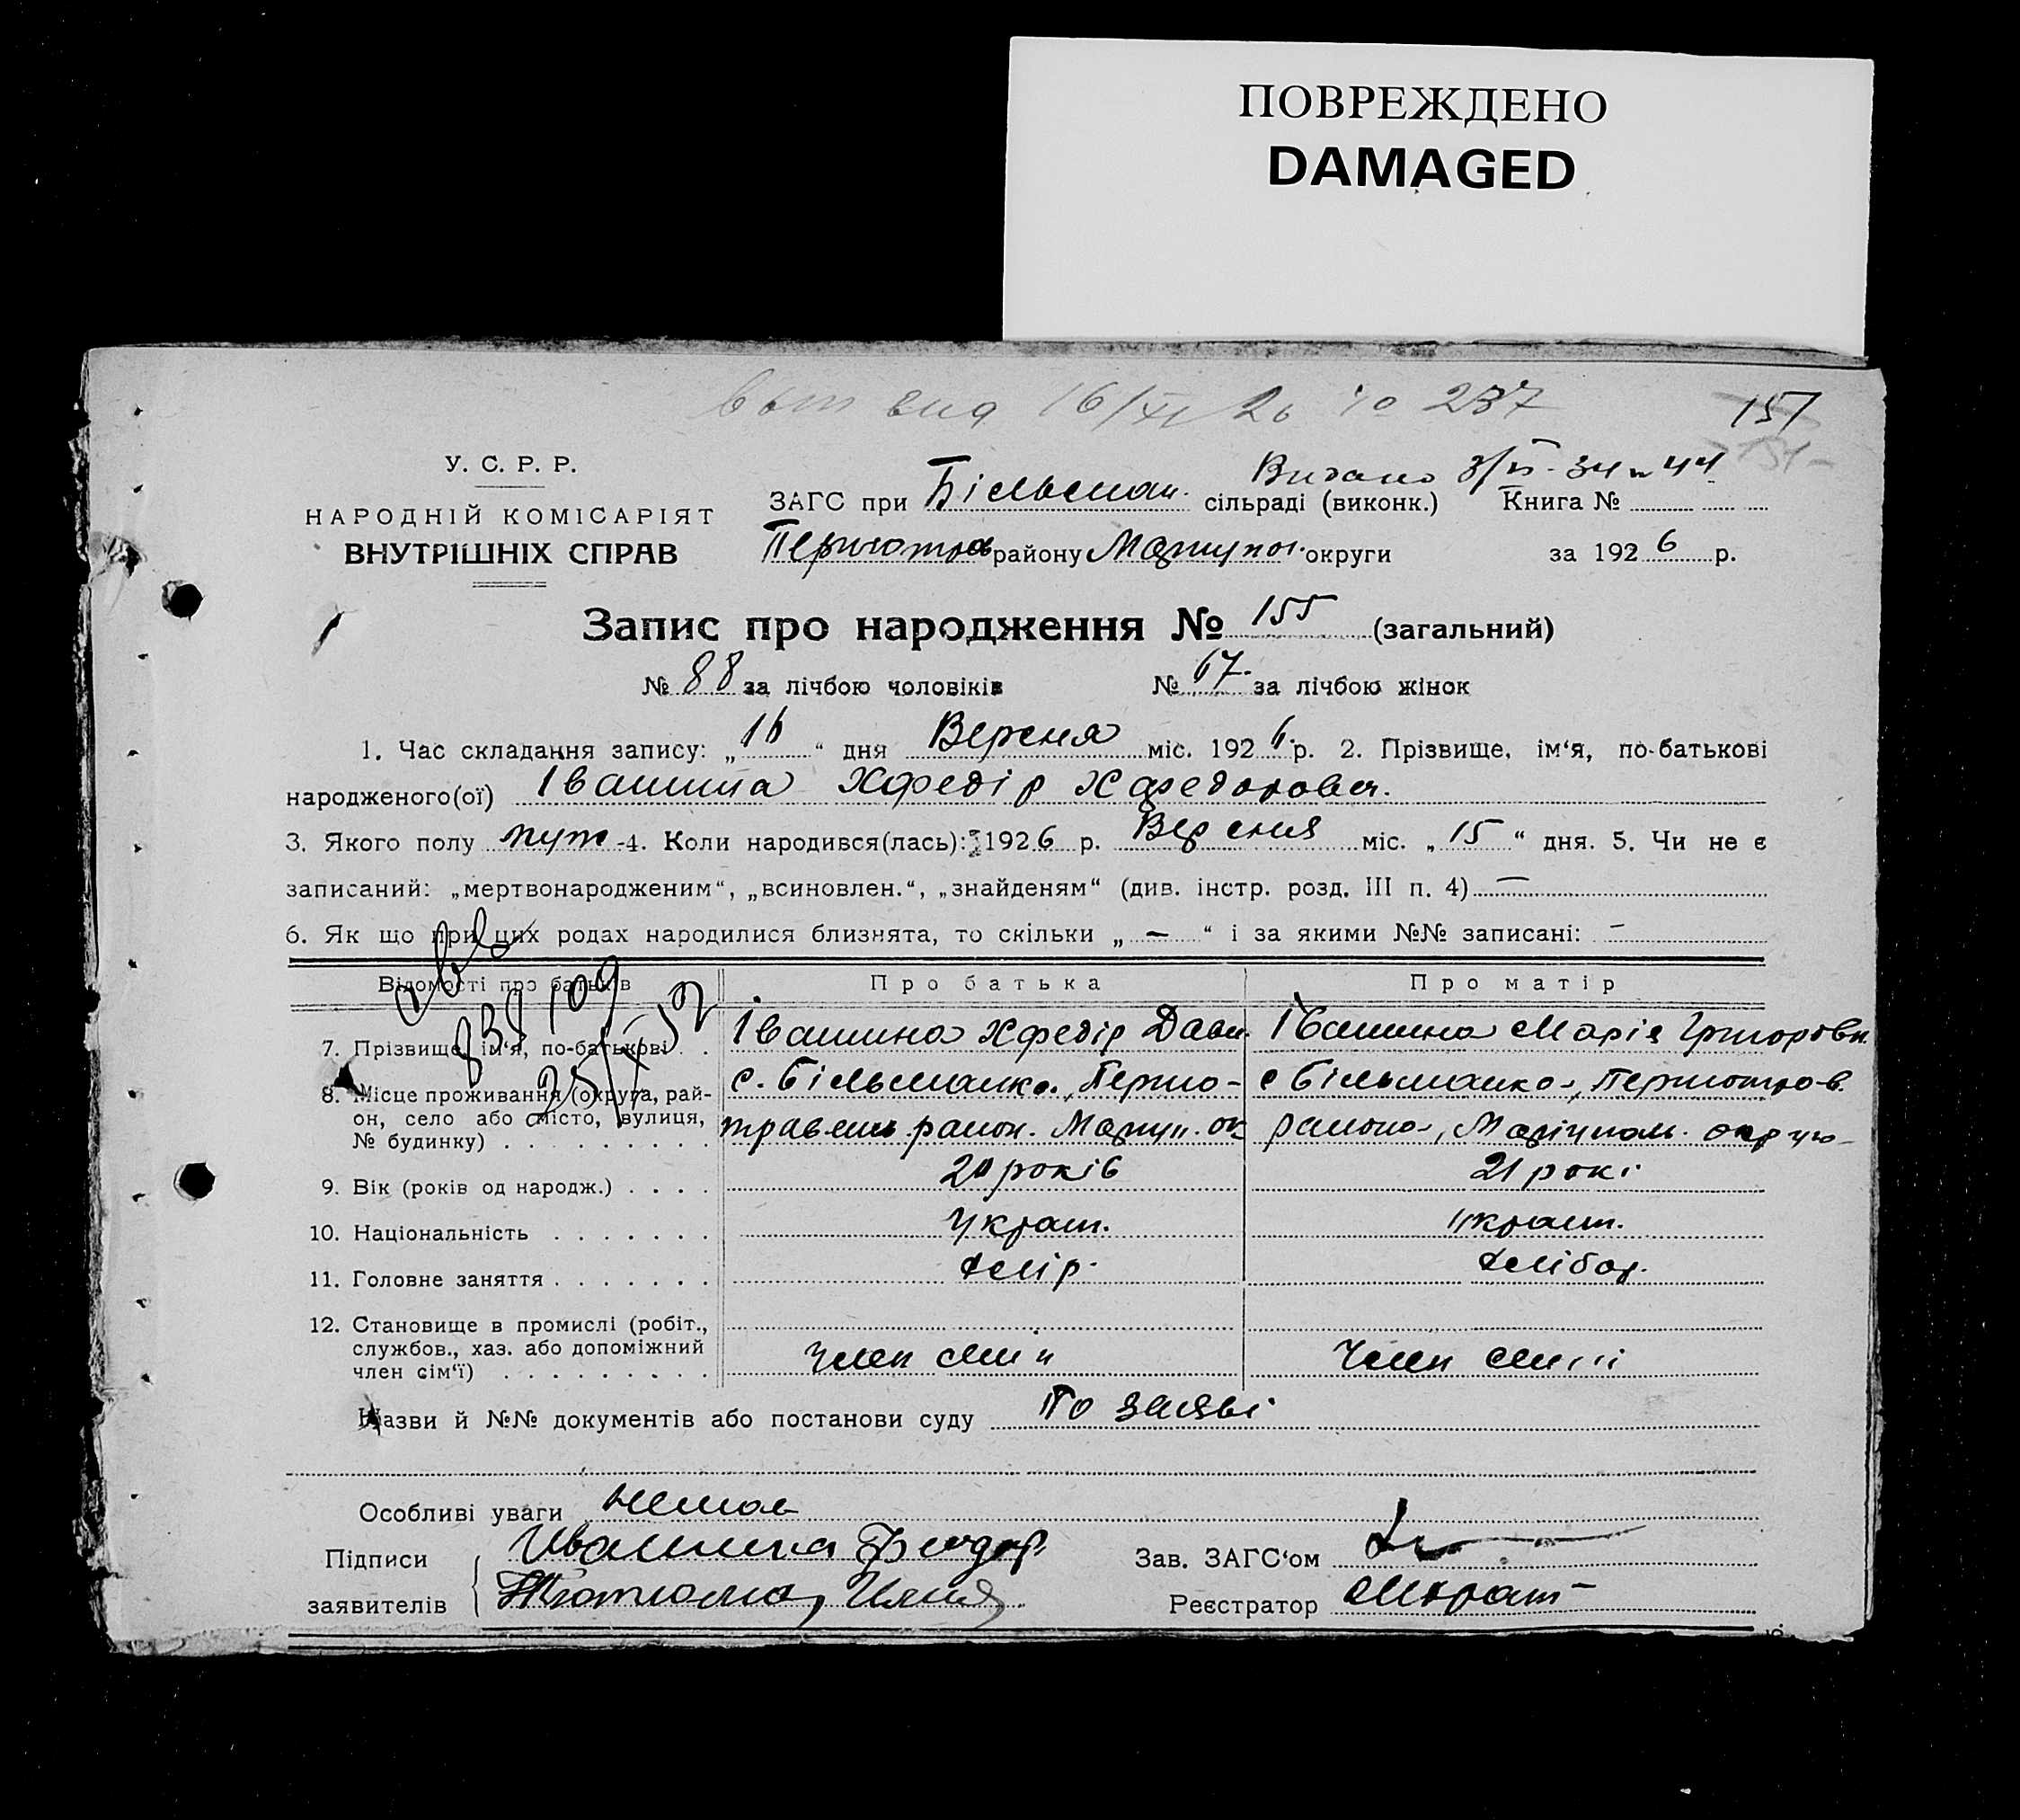 ПОВРЕЖДЕНО
DAMAGED
16/XI 26 237
151
У. С. Р. Р.
НАРОДНІЙ КОМІСАРІЯТ
ВНУТРІШНІХ СПРАВ
Видано
ЗАГС при Більман. сільраді (виконк.) Книга №
району Маріупол. округи за 1926 р.
Запис про народження № 155 (загальний)
№ 88 за лічбою чоловіків № 67 за лічбою жінок
1. Час складання запису: „16“ дня Версня міс. 1926 р. 2. Прізвище, ім‘я, по-батькові
народженого(ої) Івашина Хфедір Хфедорович.
3. Якого полу муж 4. Коли народився(лась): 1926 р. Версня міс. „15“ дня. 5. Чи не є
записаний: „мертвонародженим“, „всиновлен.“, „знайденям“ (див. інстр. розд. III п. 4) —
6. Як що при цих родах народилися близнята, то скільки „—“ і за якими №№ записані: —
Відомості про батьків Про батька Про матір
7. Прізвище, ім‘я, по-батькові Івашина Хфедір Дави. Івашина Марія Григоровн.
8. Місце проживання (округа, рай-
он, село або місто, вулиця,
№ будинку)
с. Більманка, Першо-
травень район. Маріуп. ок
с Більманка, Першотров.
району, Маріуполь.
9. Вік (років од народж.) 20 років 21 рокі
10. Національність Украін. украін.
11. Головне заняття хлір. хлібор.
12. Становище в промислі (робіт.,
службов., хаз. або допоміжний
член сім‘ї) Член сімії Член сімії
Назви й №№ документів або постанови суду По заяві
Особливі уваги Немае
Підписи Ивашина Федор Зав. ЗАГС‘ом
заявителів Реєстратор